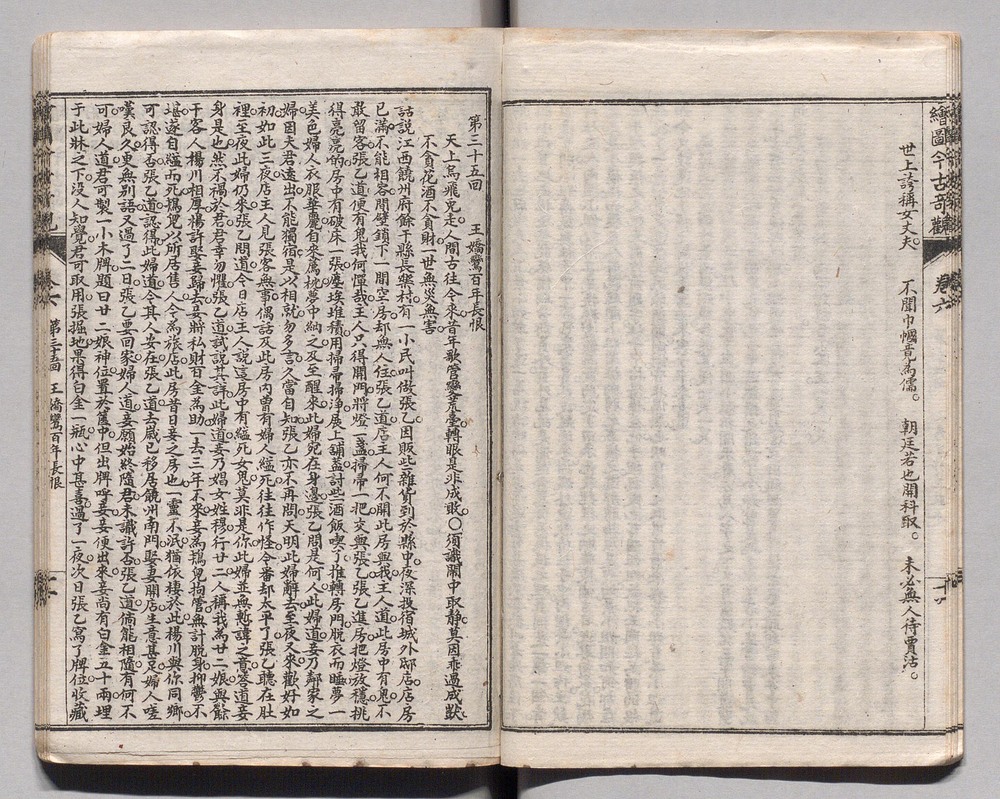 繪圖今古奇觀 卷六
世上誇稱女丈夫。 不聞巾幗竟為儒。 朝廷若也開科取。 未必無人待賈沽。
第三十五回 王嬌鸞百年長恨
天上烏飛兔走。人間古往今來。昔年歌管變荒臺。轉眼是非成敗。〇須識鬧中取靜。莫因乖過成獃。
不貪花酒不貪財。一世無災無害。
話說江西饒州府餘干縣長樂村。有一小民叫做張乙。因販些雜貨到於縣中。夜深投宿城外邸店。店房
已滿。不能相容。間壁鎖下一間空房。却無人住。張乙道。店主人何不開此房與我。主人道。此房中有鬼。不
敢留客。張乙道。便有鬼。我何懼哉。主人只得開門。將燈一盞掃帚一把。交與張乙。張乙進房。把燈放穩。挑
得亮亮的。房中有破床一張。塵埃堆積。用掃帚掃淨。展上鋪蓋。討些酒飯喫了。推轉房門。脫衣而睡。夢一
美色婦人。衣服華麗。自來薦枕。夢中納之。及至醒來。此婦宛在身邊。張乙問是何人。此婦道。妾乃鄰家之
婦。因夫君遠出。不能獨宿。是以相就。勿多言。久當自知。張乙亦不再問。天明。此婦辭去。至夜又來。歡好如
初。如此三夜。店主人見張客無事。偶話及此房內曾有婦人縊死。往往作怪。今番却太平了。張乙聽在肚
裡。至夜此婦仍來。張乙問道。今日店主人說這房中有縊死女鬼。莫非是你。此婦並無慙諱之意。答道。妾
身是也。然不禍於君。君幸勿懼。張乙道。試說其詳。此婦道。妾乃娼女。姓穆。行廿二。人稱我為廿二娘。與餘
干客人楊川相厚。楊許娶妾歸去。妾將私財百金為助。一去三年不來。妾為鴇兒拘管。無計脫身。抑鬱不
堪。遂自縊而死。鴇兒以所居售人。今為旅店。此房昔日妾之房也。一靈不泯。猶依棲於此。楊川與你同鄉。
可認得否。張乙道。認得。此婦道。今其人安在。張乙道。去歲已移居饒州南門。娶妻開店。生意甚足。婦人嗟
嘆良久。更無別語。又過了二日。張乙要回家。婦人道。妾願始終隨君。未識許否。張乙道。倘能相隨。有何不
可。婦人道。君可製一小木牌。題曰廿二娘神位。置於篋中。但出牌呼妾。妾便出來。妾尚有白金五十兩。埋
于此牀之下。沒人知覺。君可取用。張掘地。果得白金一瓶。心中甚喜。過了一夜。次日張乙寫了牌位。收藏
卷六 第三十五回 王嬌鸞百年長恨